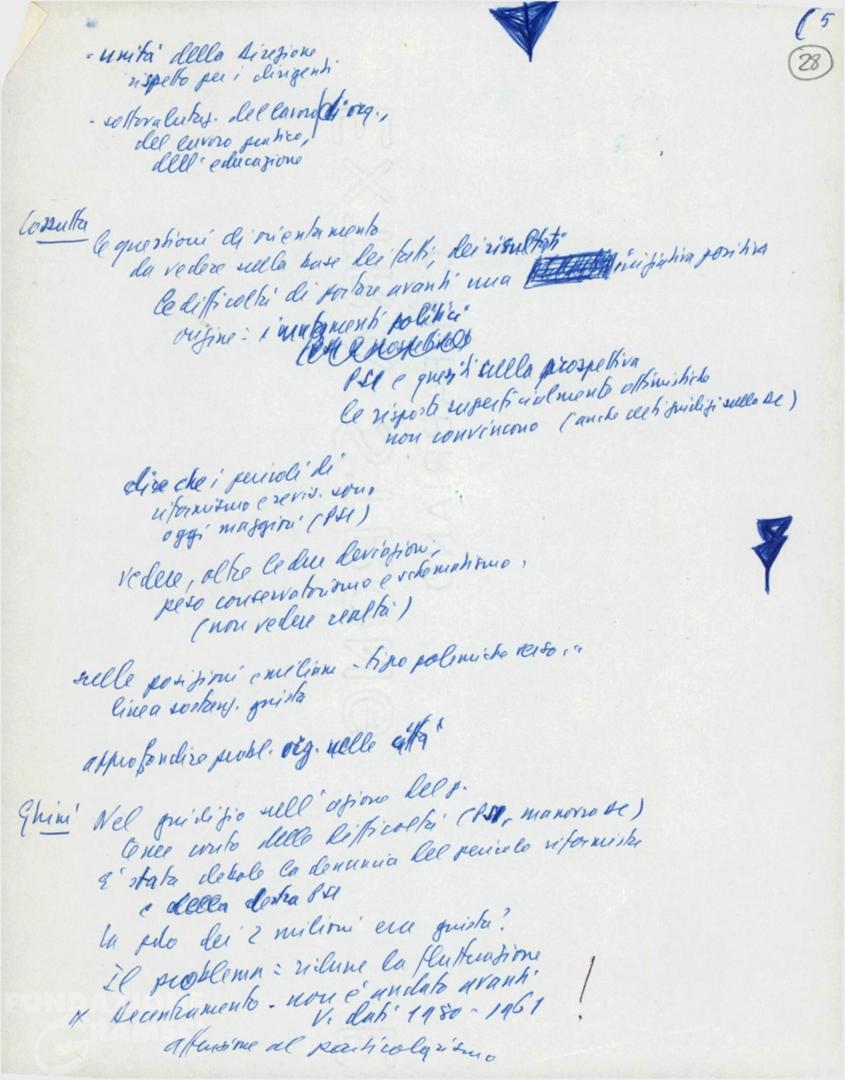 5
28
- unità della Direzione
rispetto per i dirigenti
- sottovalutaz. del lavoro di org.,
del lavoro pratico,
dell'educazione
Cossutta
le questioni di orientamento
da vedere sulla base dei fatti, dei risultati
le difficoltà di portare avanti una iniziativa positiva
origine: i mutamenti politici
PSI e quesiti sulla prospettiva
le risposte superficialmente ottimistiche
non convincono (anche certi giudizi sulla DC)
dire che i pericoli di
riformismo e revis. sono
oggi maggiori (PSI)
vedere, oltre le due deviazioni,
peso conservatorismo e schematismo,
(non vedere realtà)
sulle posizioni emiliane - tipo polemiche verso...
linea sostanz. giusta
approfondire probl. org. nelle città
Ghini Nel giudizio sull'azione del p.
tener conto delle difficoltà (PSI, manovra DC)
È stata debole la denuncia del pericolo riformista
e della destra PSI
la dei 2 milioni era giusta?
Il problema: ridurre la fluttuazione
x Decentramento - non è andato avanti
V. dati 1960-1961 !
attenzione al particolarismo
FONDAZIONE
GRAMSCI